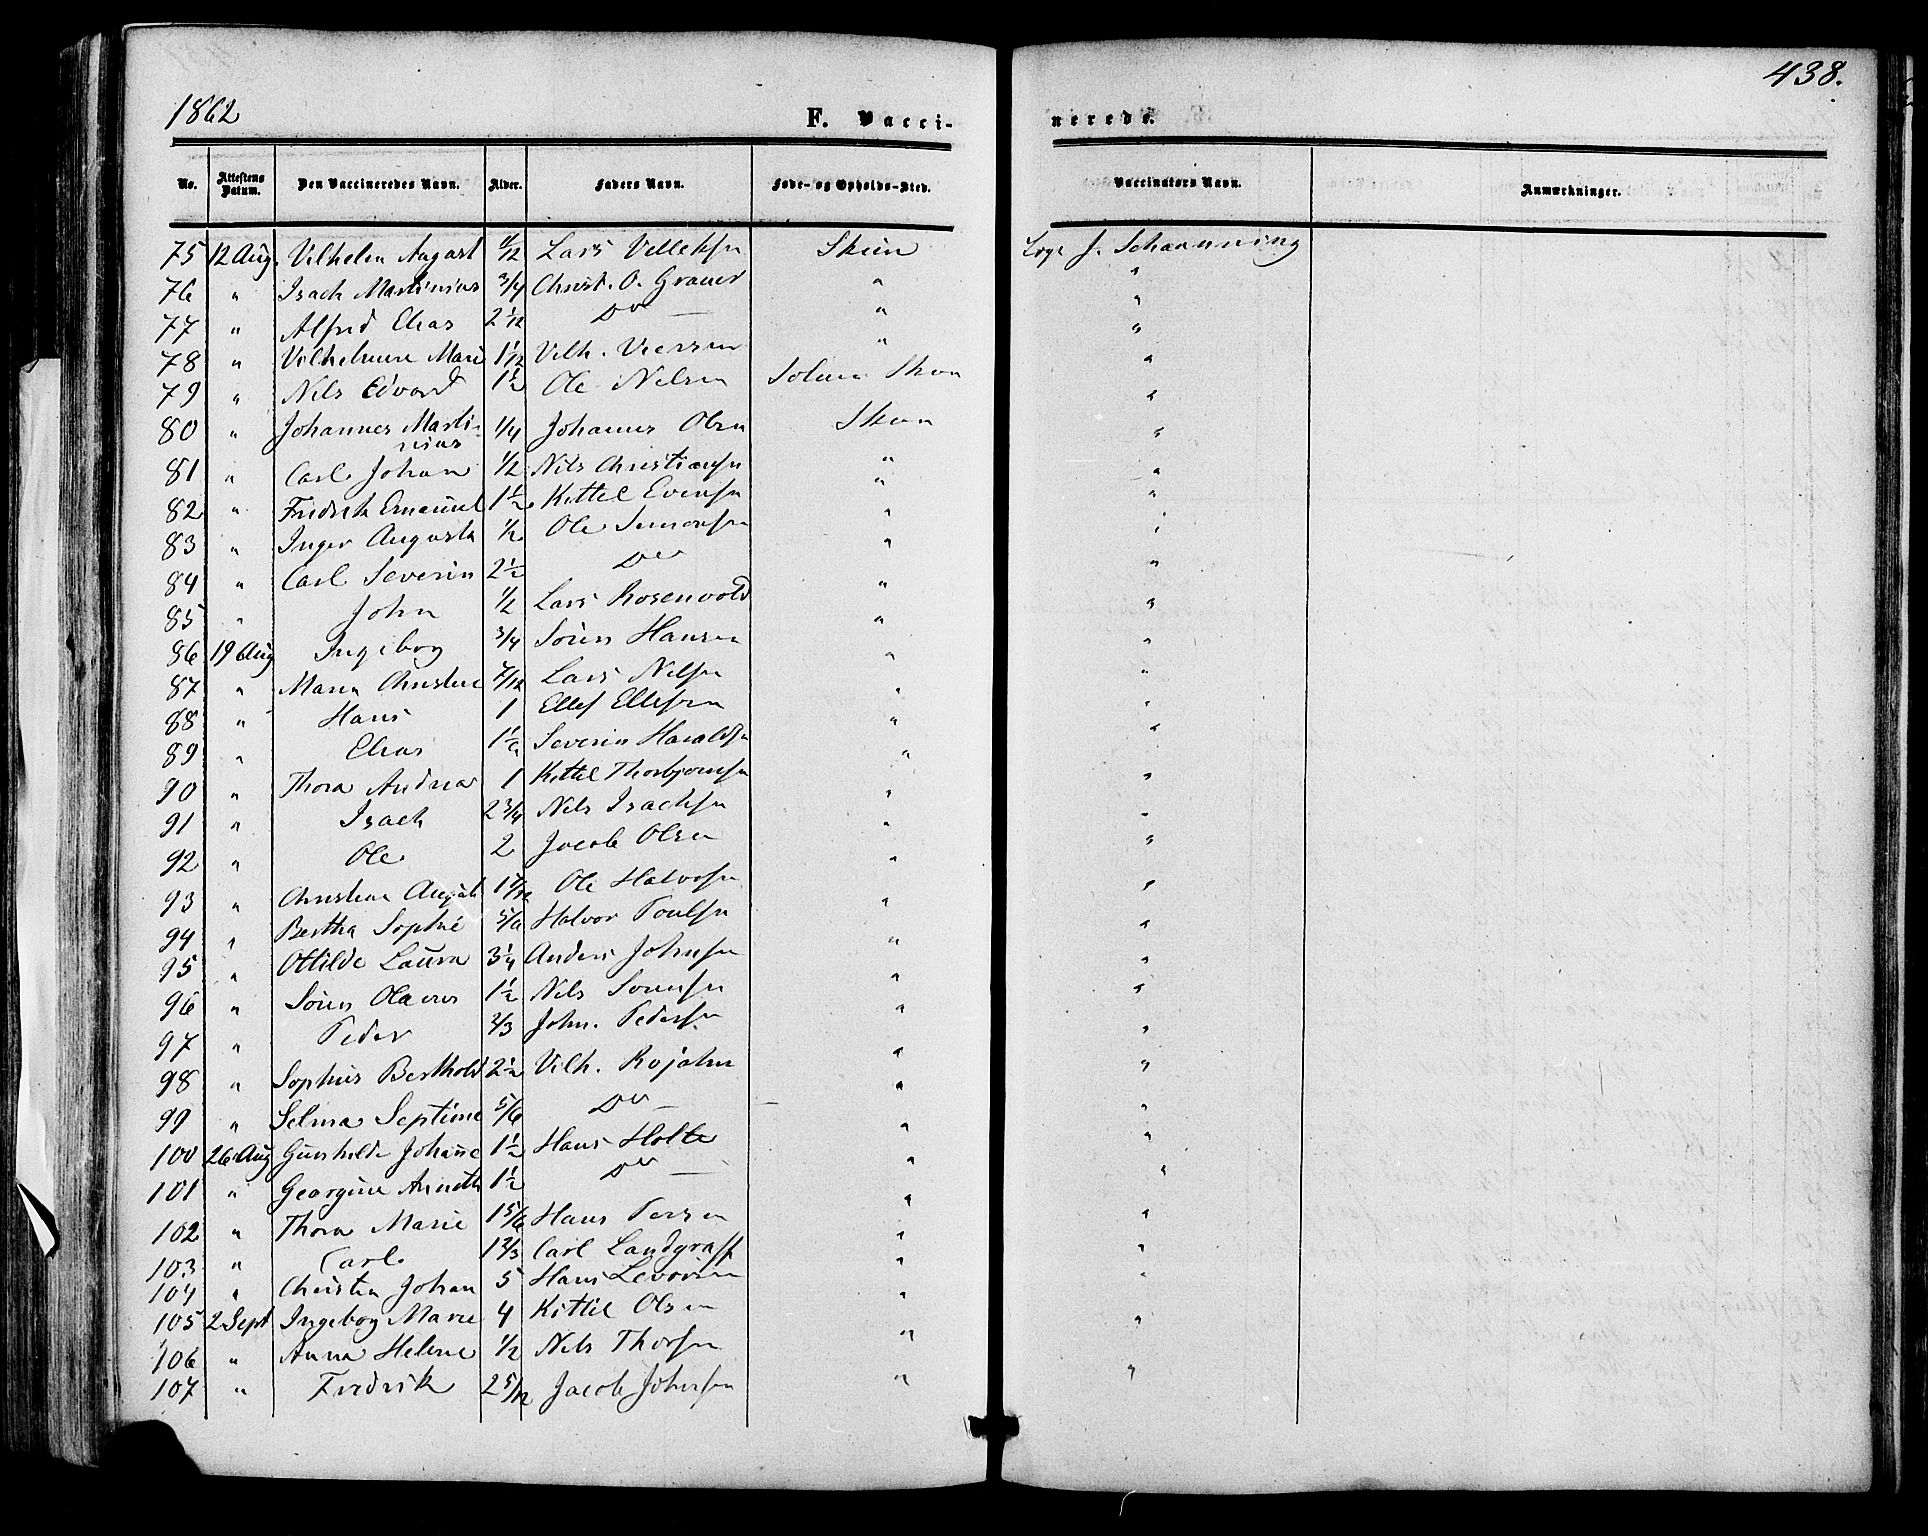 438.
1862
F. Vacci-
nerede.
No. Attestens Datum. Den Vaccineredes Navn. Alder. Faders Navn. Føde- og Opholds-Sted. Vaccinators Navn. Anmærkninger.
75 12 Aug. Vilhelm August Lars Skien J. Scharnning
76 " Isach Martinius 3/4 Christ. O. Graner " "
77 " Alfred Elias 2 1/12 Do — " "
78 " Vilhelmine Marie 1 1/12 Vilh. " "
79 " Nils Edvard 1 1/2 Ole Nelsen Solum Skien "
80 " Johannes Marti-
nius 1/4 Johannes Olsen Skien "
81 " Carl Johan 1/2 Nils Christiansn " "
82 " Fredrik Emanuel 1 1/2 Kittel Evensn " "
83 " Inger Augusta 1/2 Ole Simonsn " "
84 " Carl Severin 2 1/2 Do " "
85 " John 1/2 Lars Rosenvold " "
86 19 Aug Ingebog 3/4 Sören Hansen " "
87 " Maren Christine 7/12 Lars Nilsn " "
88 " Hans 1 Ellef Ellefsen " "
89 " Elias Severin Haraldsn " "
90 " Thora Andrea 1 Kittel Thorbjornsn " "
91 " Isach 2 3/4 Nils Isachsn " "
92 " Ole 2 Jacob Olsen " "
93 " Christine Ole Halvorsn " "
94 " Bertha Sophie 5/6 Halvor Poulsn " "
95 " Ottilde Laura 3 1/4 Anders Johnsen " "
96 " Sören Olaves 1 1/2 Nils Sorensn " "
97 " Peder 2/3 John. Pedersn " "
98 " Sophus Berthold 2 1/2 Vilh. Rojahn " "
99 " Selma Septime 5/6 Do — " "
100 26 Aug Gunhilde Johanne 1 1/2 Hans Holte " "
101 " Georgine Anneth 1 1/2 Do — " "
102 " Thora Marie 1 5/6 Hans " "
103 " Carl 1 2/3 Carl Landgraff " "
104 " Christen Johan 5 Hans " "
105 2 Sept Ingebog Marie 4 Kittil Olsen " "
106 " Anna Helene 1/2 Nils Thorsn " "
107 " Fredrik 2 5/12 Jacob Johnsen " "